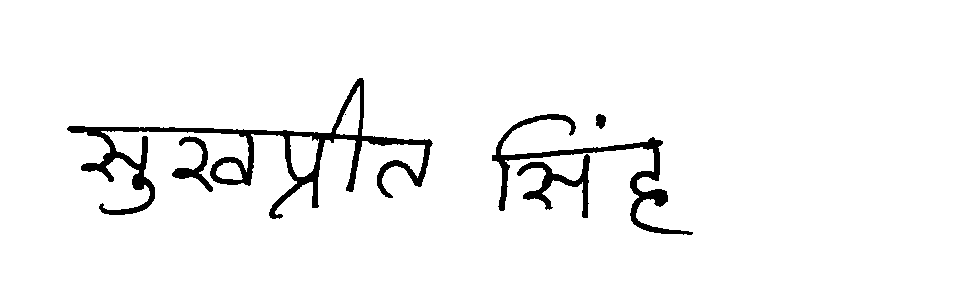 सुखप्रीत सिंह